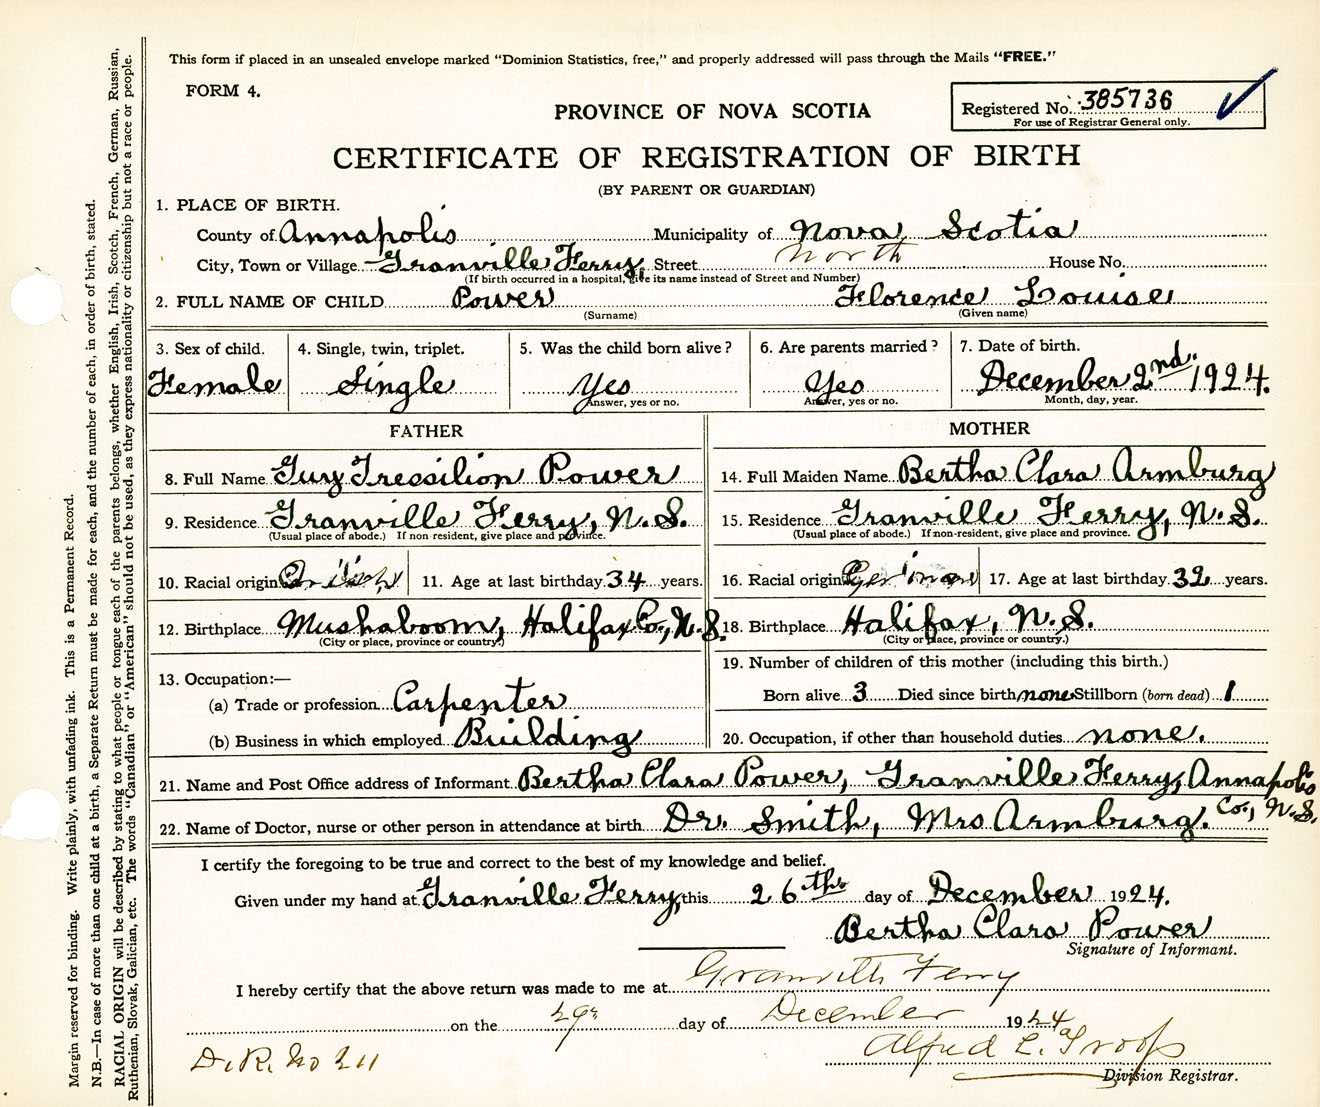 This form if placed in an unsealed envelope marked "Dominion Statistics, free," and properly addressed will pass through the Mails "FREE."
FORM 4.
PROVINCE OF NOVA SCOTIA
Registered No. 385736
For use of Registrar General only.
CERTIFICATE OF REGISTRATION OF BIRTH
(BY PARENT OR GUARDIAN)
1. PLACE OF BIRTH.
County of Annapolis Municipality of Nova Scotia
City, Town or Village Granville Ferry, Street North House No.
(If birth occurred in a hospital, give its name instead of Street and Number)
2. FULL NAME OF CHILD Power Florence Louise
(Surname) (Given name)
3. Sex of child. 4. Single, twin, triplet. 5. Was the child born alive? 6. Are parents married? 7. Date of birth.
Female Single Yes Yes December 2nd. 1924.
Answer, yes or no. Answer, yes or no. Month, day, year.
FATHER MOTHER
8. Full Name Guy Tressilion Power 14. Full Maiden Name Bertha Clara Armburg
9. Residence Granville Ferry, N.S. 15. Residence Granville Ferry, N.S.
(Usual place of abode.) If non-resident, give place and province. (Usual place of abode.) If non-resident, give place and province.
10. Racial origin 11. Age at last birthday 34 years. 16. Racial origin German 17. Age at last birthday 32 years.
12. Birthplace Mushaboom, Halifax Co., N.S. 18. Birthplace Halifax, N.S.
(City or place, province or country.) (City or place, province or country.)
13. Occupation:— 19. Number of children of this mother (including this birth.)
(a) Trade or profession Carpenter Born alive 3 Died since birth none Stillborn (born dead) 1
(b) Business in which employed Building 20. Occupation, if other than household duties none.
21. Name and Post Office address of Informant Bertha Clara Power, Granville Ferry, Annapolis
Co., N.S.
22. Name of Doctor, nurse or other person in attendance at birth Dr. Smith, Mrs Armburg.
I certify the foregoing to be true and correct to the best of my knowledge and belief.
Given under my hand at Granville Ferry, this 26th day of December 1924.
Bertha Clara Power
Signature of Informant.
I hereby certify that the above return was made to me at Granville Ferry
on the 29 day of December 1924
Alfred L. Troop
D.R. No 211 Division Registrar.
Margin reserved for binding. Write plainly, with unfading ink. This is a Permanent Record.
N.B.—In case of more than one child at a birth, a Separate Return must be made for each, and the number of each, in order of birth, stated.
RACIAL ORIGIN will be described by stating to what people or tongue each of the parents belongs, whether English, Irish, Scotch, French, German, Russian,
Ruthenian, Slovak, Galician, etc. The words "Canadian" or "American" should not be used, as they express nationality or citizenship but not a race or people.